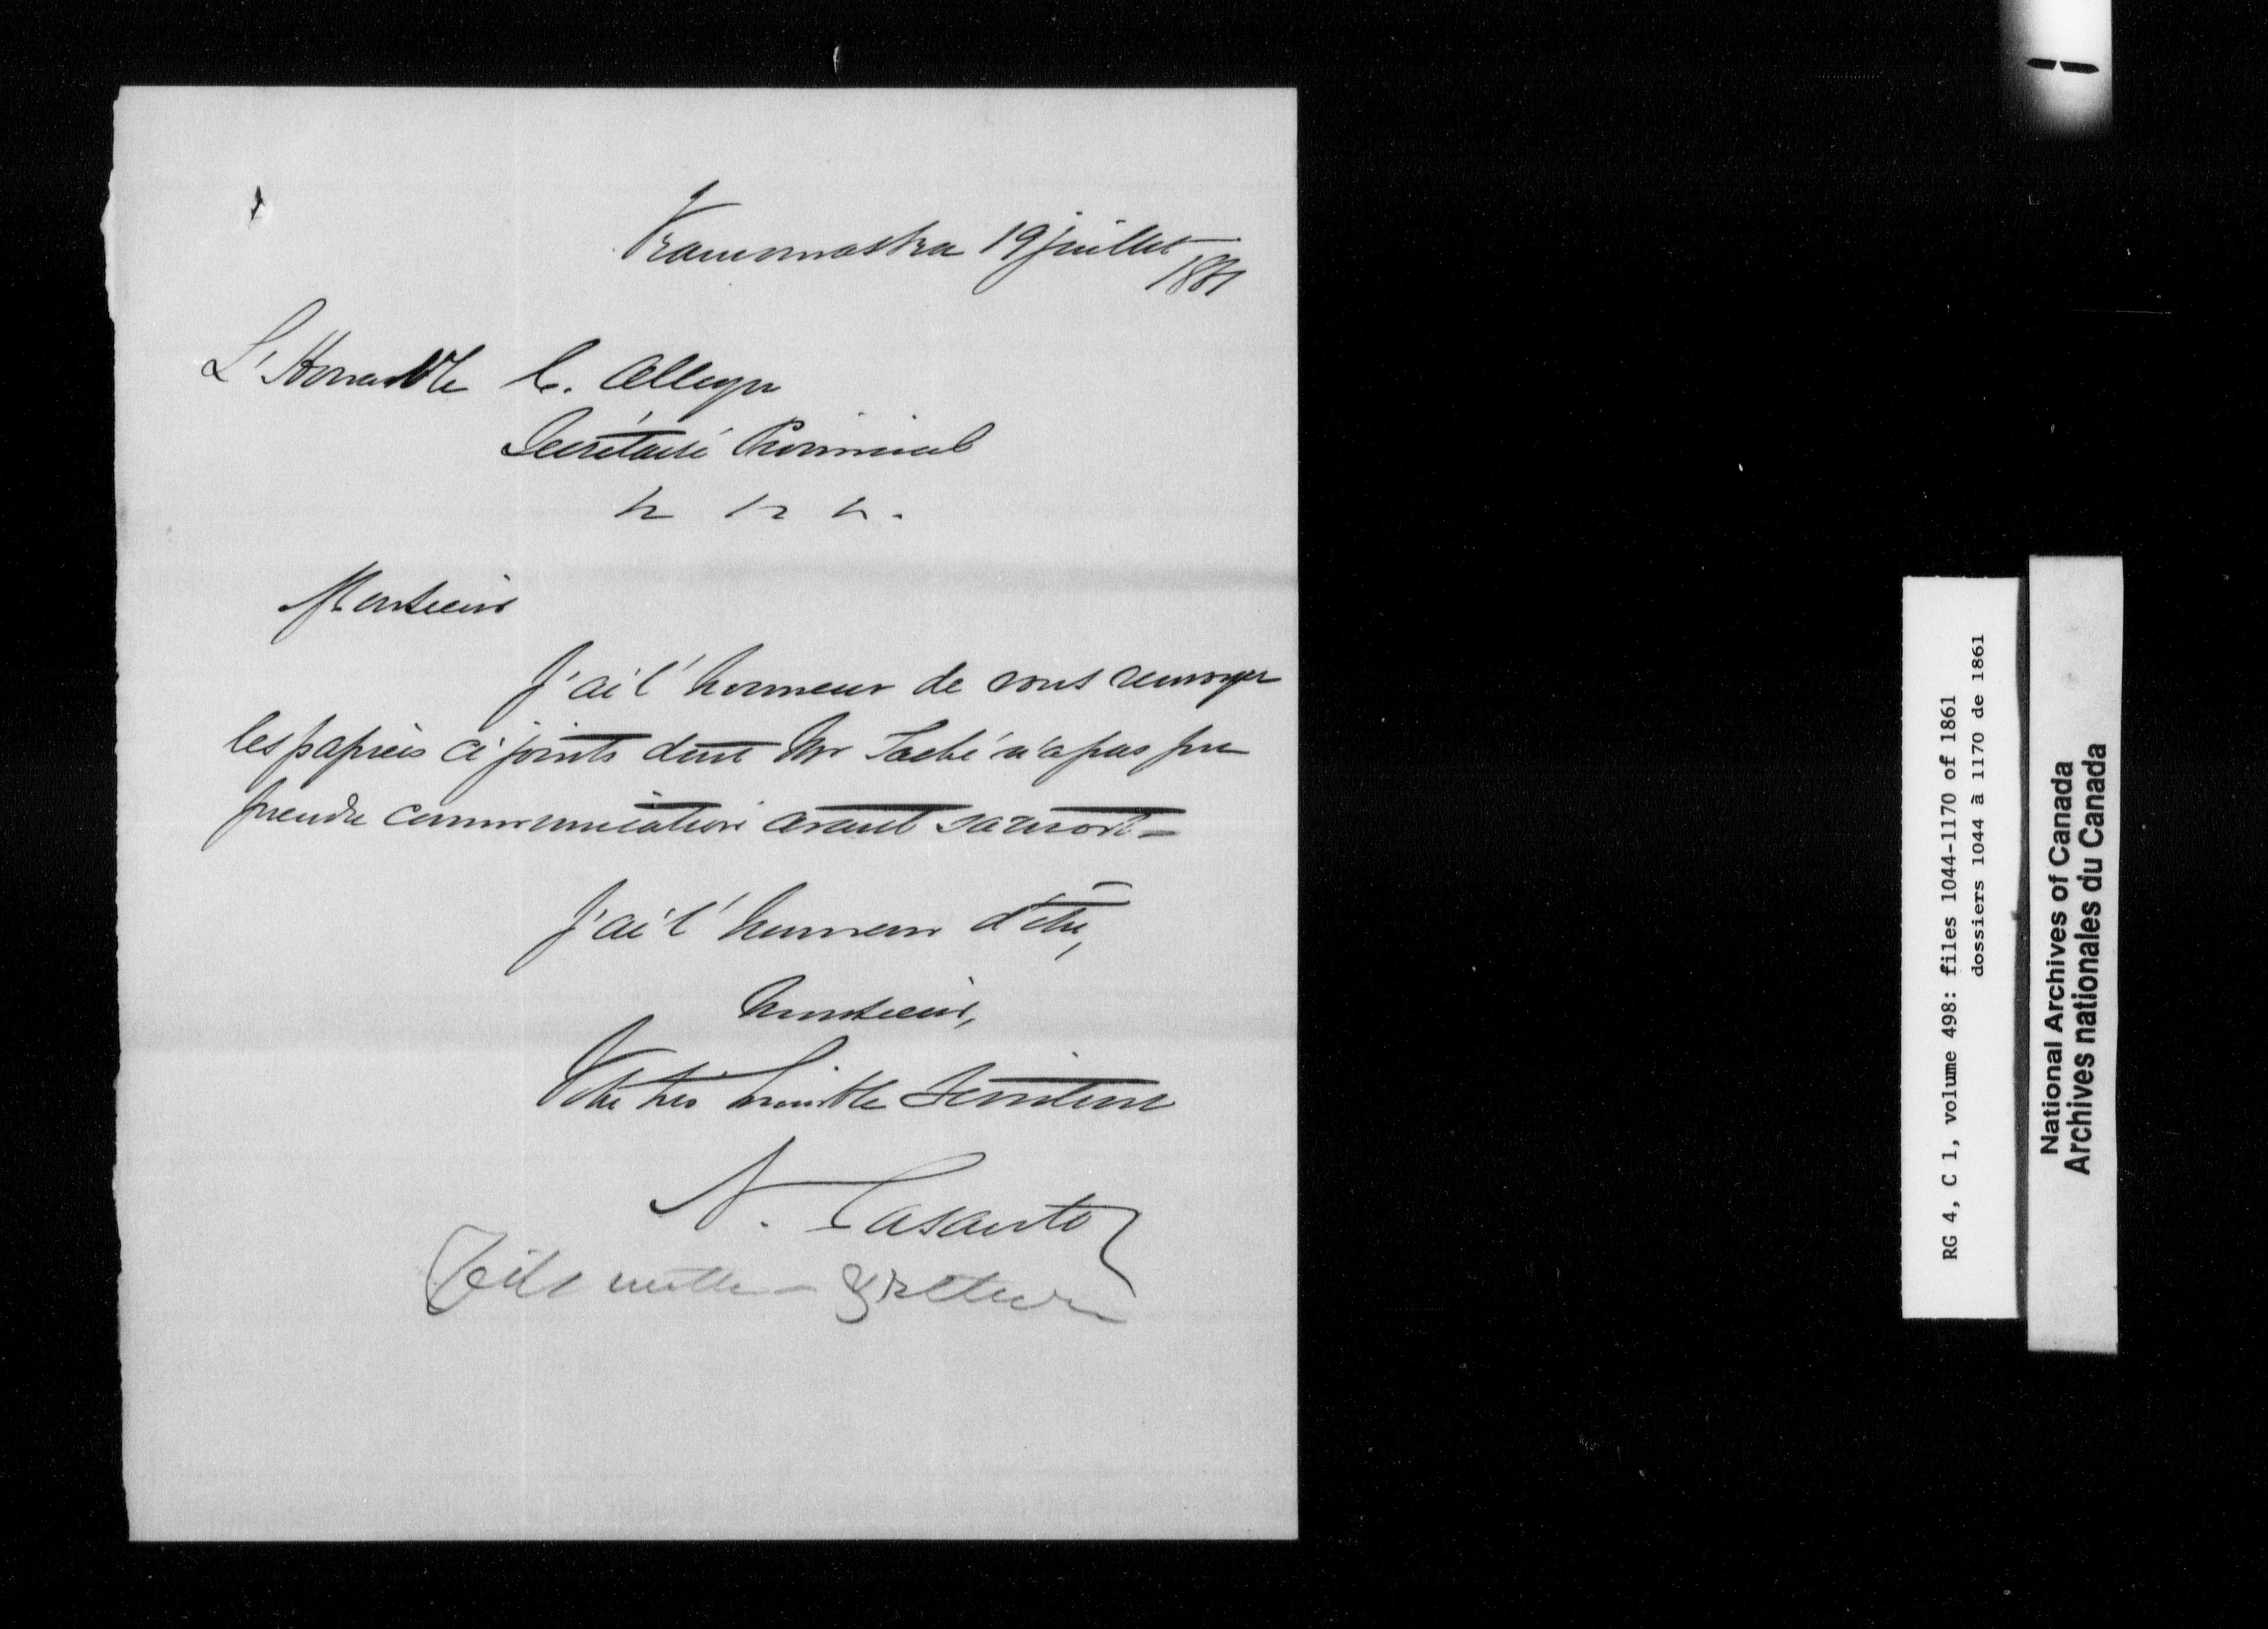 Kamouraska 19 juillet
1861
L'Honorable C. Alleyn
Secrétaire Provincial
&c &c &c.
Monsieur
J'ai l'honneur de vous renvoyer
les papiers ci joints dont Mr Taché n'a pas pu
prendre communication avant sa mort –
J'ai l'honneur d'être,
Monsieur,
Votre très humble Serviteur
N. Casault
RG 4, C 1, volume 498: files 1044-1170 of 1861
dossiers 1044 à 1170 de 1861
National Archives of Canada
Archives nationales du Canada